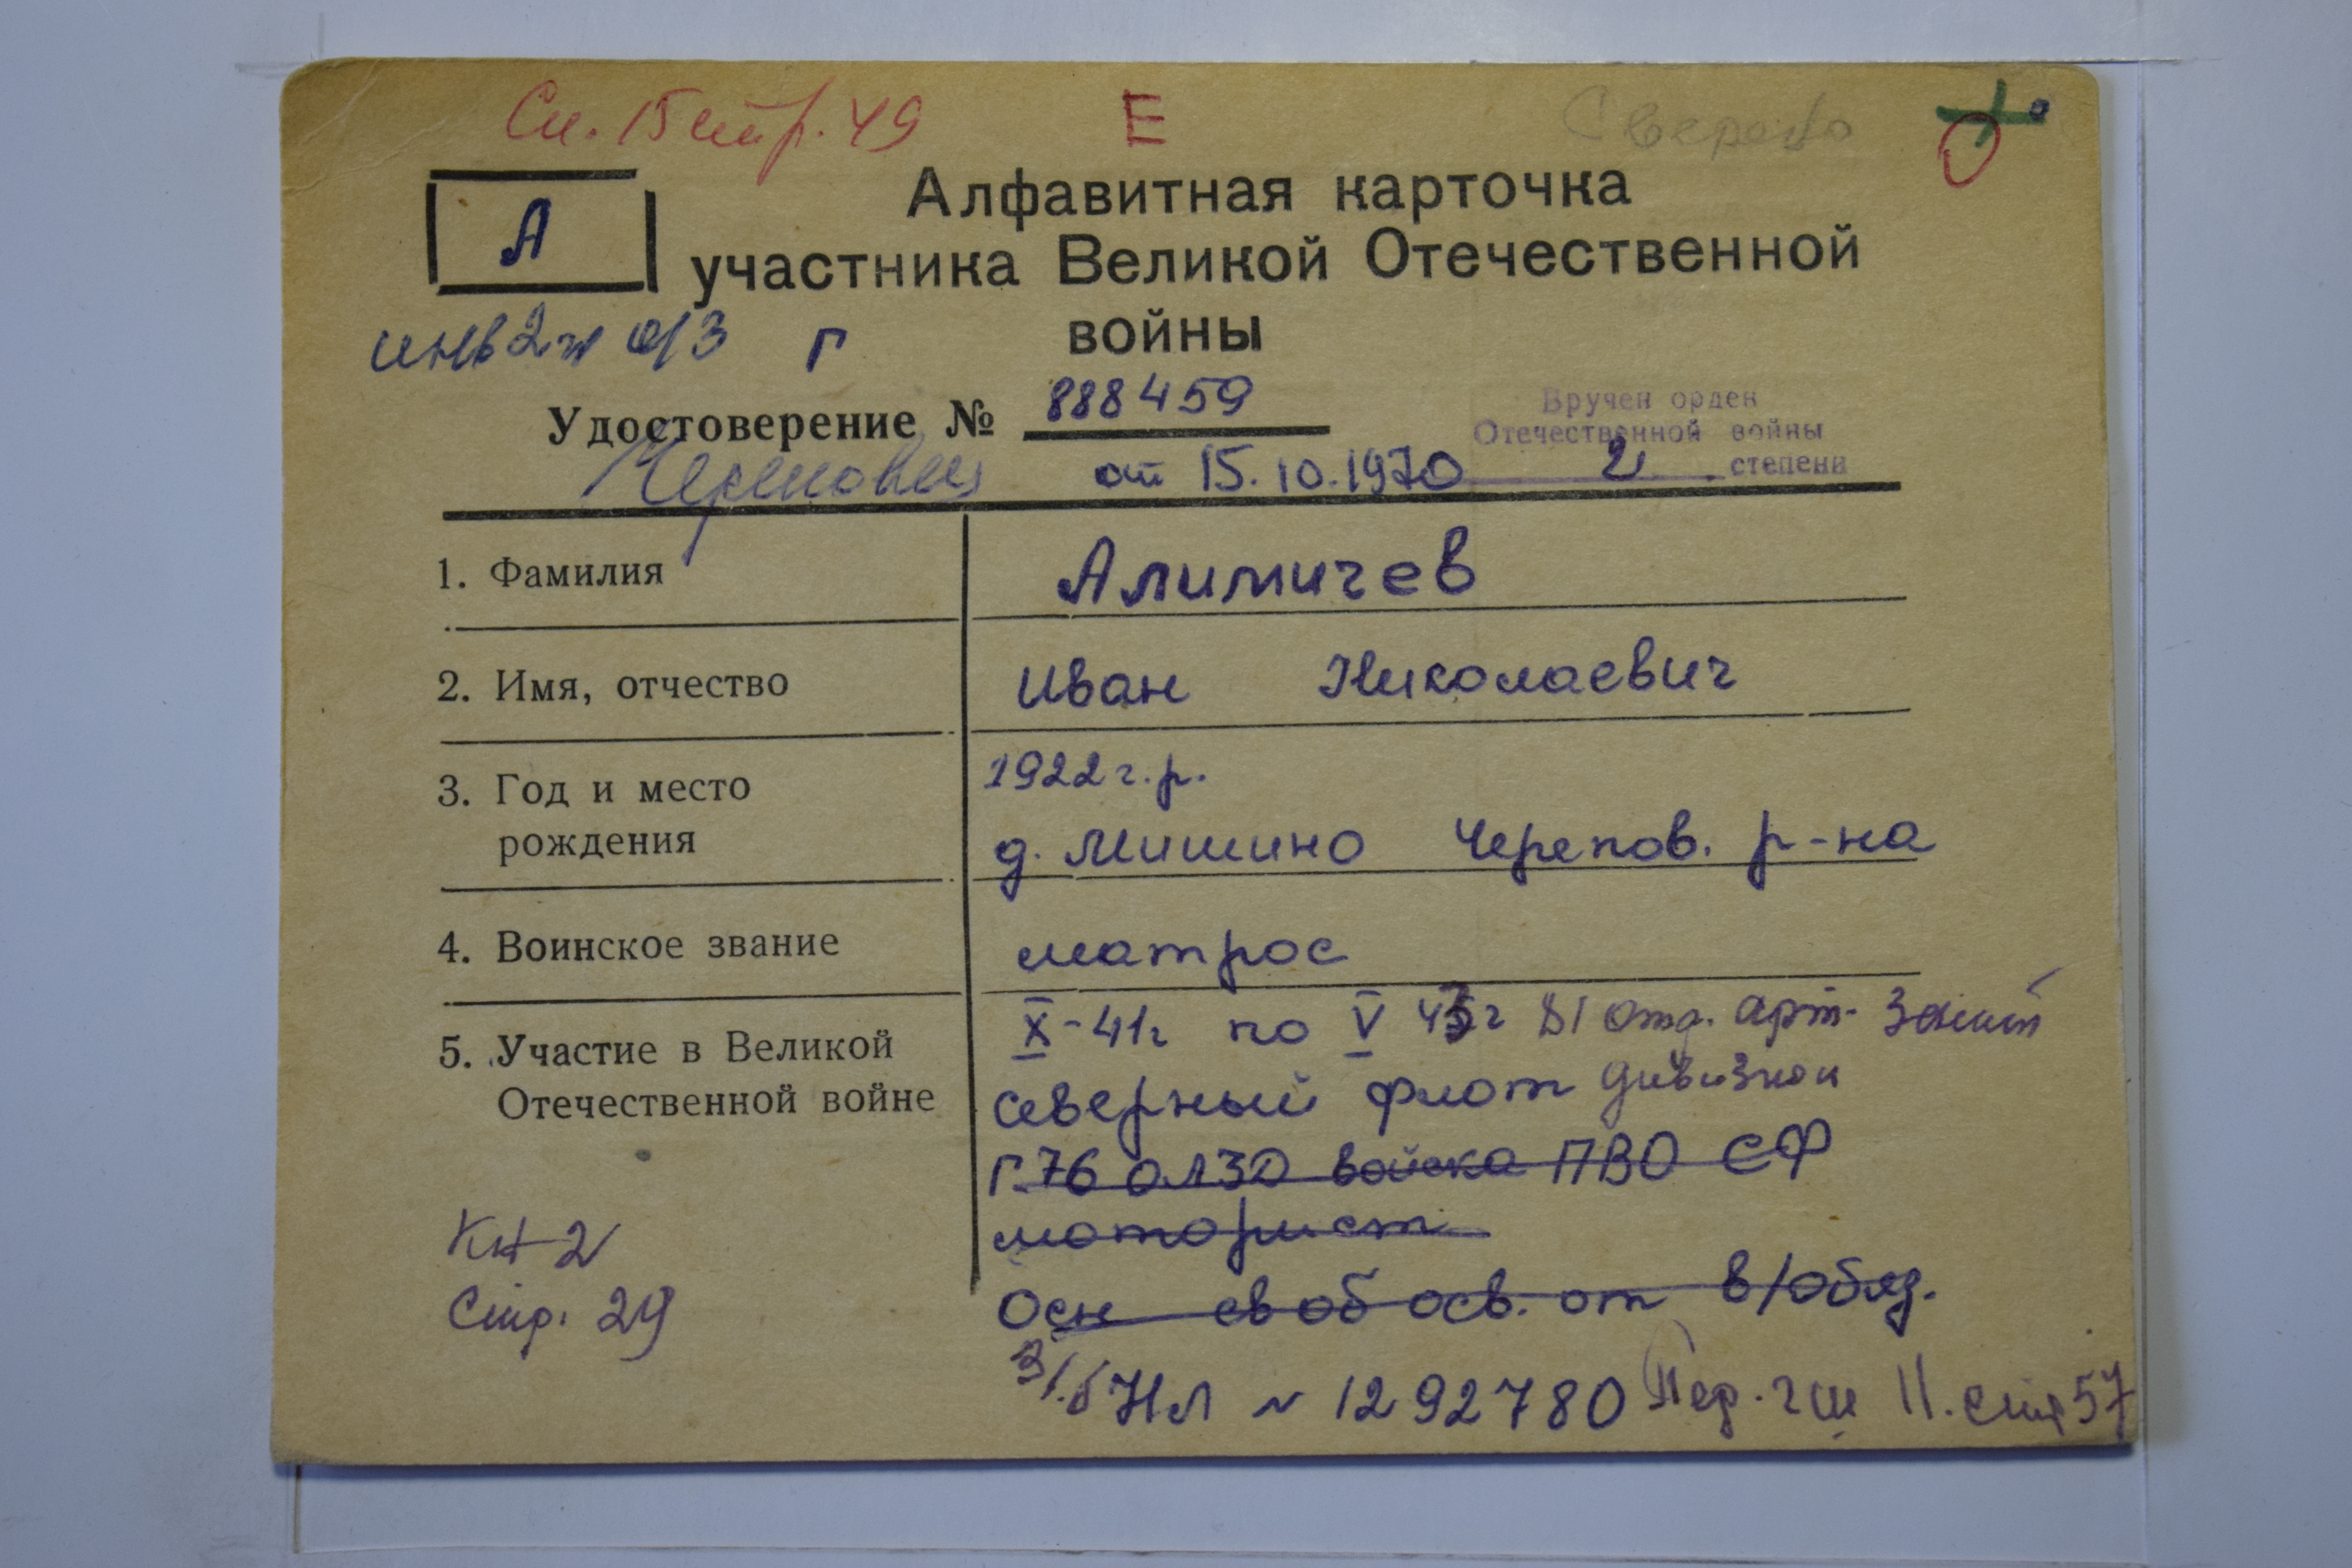 Сп. 15 стр. 49 Е Сверено
А
Алфавитная карточка
участника Великой Отечественной
войны
инв 2 гр о/з Г
Удостоверение № 888459
Вручен орден
Отечественной войны
2 степени
от 15.10.1970
1. Фамилия Алимичев
2. Имя, отчество Иван Николаевич
3. Год и место 1922 г.р.
рождения д. Мишино Черепов. р-на
4. Воинское звание матрос
5. Участие в Великой X-41г по V 45г 81 отд. арт. зенит
Отечественной войне северный флот дивизион
Г.76 ОЛЗД войска ПВО СФ
моторист
Осн своб осв. от в/обяз.
Кн 2
Стр. 29
НЛ № 1292780 11. стр 57